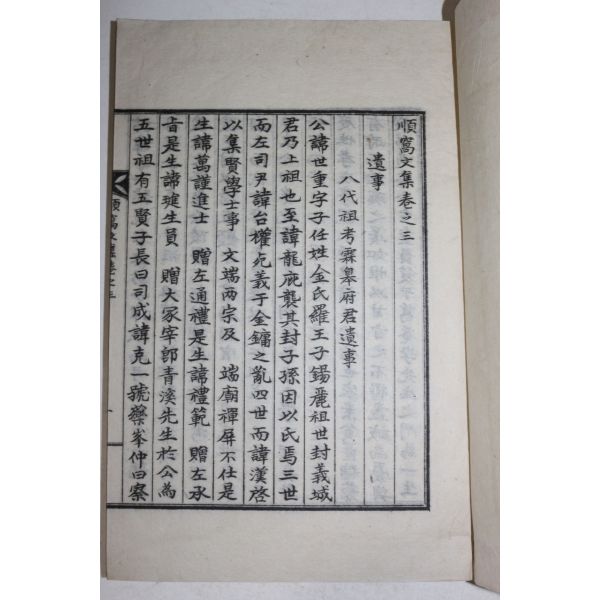 順窩文集卷之三
遺事
八代祖考霖皋府君遺事
公諱世重字子任姓金氏羅王子錫麗祖世封義城
君乃上祖也至諱龍庇襲其封子孫因以氏焉三世
而左司尹諱台權死義于金鏞之亂四世而諱漢啓
以集賢學士事 文端兩宗及 端廟禪屏不仕是
生諱萬謹進士 贈左通禮是生諱禮範 贈左承
旨是生諱璡生員 贈大冢宰卽青溪先生於公為
五世祖有五賢子長曰司成諱克一號藥峯仲曰察
順窩文集卷之三
一